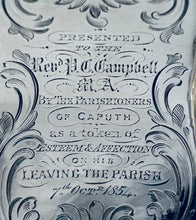 PRESENTED
TO THE
Revd P. C. Campbell
M.A.
BY THE PARISHIONERS
OF CAPUTH
as a token of
ESTEEM & AFFECTION
ON HIS
LEAVING THE PARISH
7th Octr 1854.